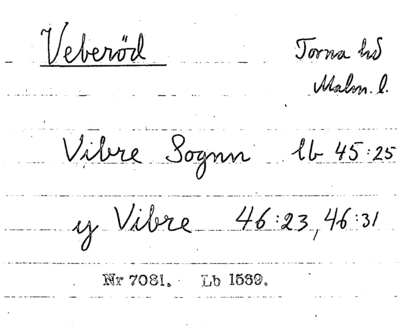 Veberöd Torna hd
Malm. l.
Vibre Sognn lb 45:25
y Vibre 46:23, 46:31
Nr 7081. Lb 1569.